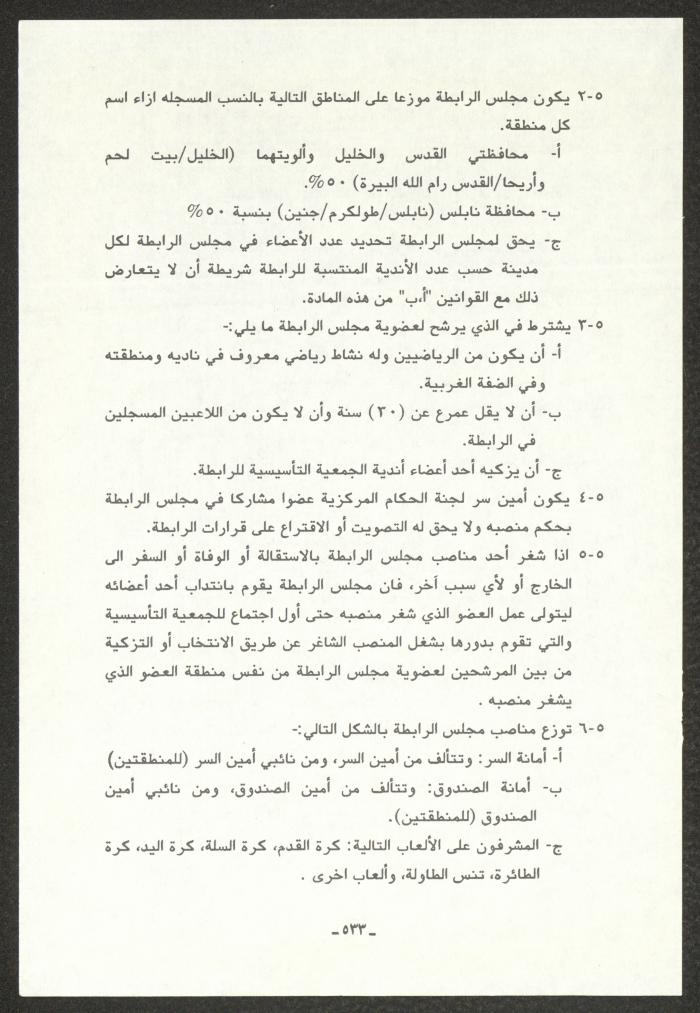 ٥-٢ يكون مجلس الرابطة موزعا على المناطق التالية بالنسب المسجله ازاء اسم
كل منطقة.
أ- محافظتي القدس والخليل وألويتهما (الخليل/بيت لحم
وأريحا/القدس رام الله البيرة) ٥٠%.
ب- محافظة نابلس (نابلس/طولكرم/جنين) بنسبة ٥٠%
ج- يحق لمجلس الرابطة تحديد عدد الأعضاء في مجلس الرابطة لكل
مدينة حسب عدد الأندية المنتسبة للرابطة شريطة أن لا يتعارض
ذلك مع القوانين "أ،ب" من هذه المادة.
٥-٣ يشترط في الذي يرشح لعضوية مجلس الرابطة ما يلي:-
أ- أن يكون من الرياضيين وله نشاط رياضي معروف في ناديه ومنطقته
وفي الضفة الغربية.
ب- أن لا يقل عمرع عن (٣٠) سنة وأن لا يكون من اللاعبين المسجلين
في الرابطة.
ج- أن يزكيه أحد أعضاء أندية الجمعية التأسيسية للرابطة.
٥-٤ يكون أمين سر لجنة الحكام المركزية عضوا مشاركا في مجلس الرابطة
بحكم منصبه ولا يحق له التصويت أو الاقتراع على قرارات الرابطة.
٥-٥ اذا شغر أحد مناصب مجلس الرابطة بالاستقالة أو الوفاة أو السفر الى
الخارج أو لأي سبب آخر، فان مجلس الرابطة يقوم بانتداب أحد أعضائه
ليتولى عمل العضو الذي شغر منصبه حتى أول اجتماع للجمعية التأسيسية
والتي تقوم بدورها بشغل المنصب الشاغر عن طريق الانتخاب أو التزكية
من بين المرشحين لعضوية مجلس الرابطة من نفس منطقة العضو الذي
يشغر منصبه .
٥-٦ توزع مناصب مجلس الرابطة بالشكل التالي:-
أ- أمانة السر: وتتألف من أمين السر، ومن نائبي أمين السر (للمنطقتين)
ب- أمانة الصندوق: وتتألف من أمين الصندوق، ومن نائبي أمين
الصندوق (للمنطقتين).
ج- المشرفون على الألعاب التالية: كرة القدم، كرة السلة، كرة اليد، كرة
الطائرة، تنس الطاولة، وألعاب اخرى .
ـ ٥٣٣ ـ